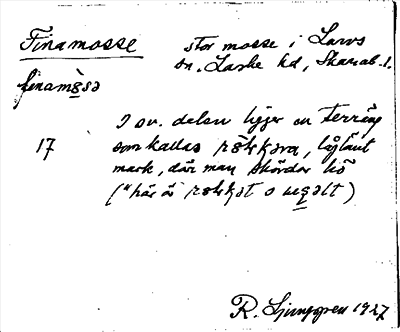 Finamosse stor mosse i Larvs
sn. Laske hd, Skarab. l.
finamåsa
I sv. delen ligger en terräng
17 som kallas rötekjora, låglänt
mark, där man skördar hö
("här ä rotekjøt o uselt)
R. Ljunggren 1927